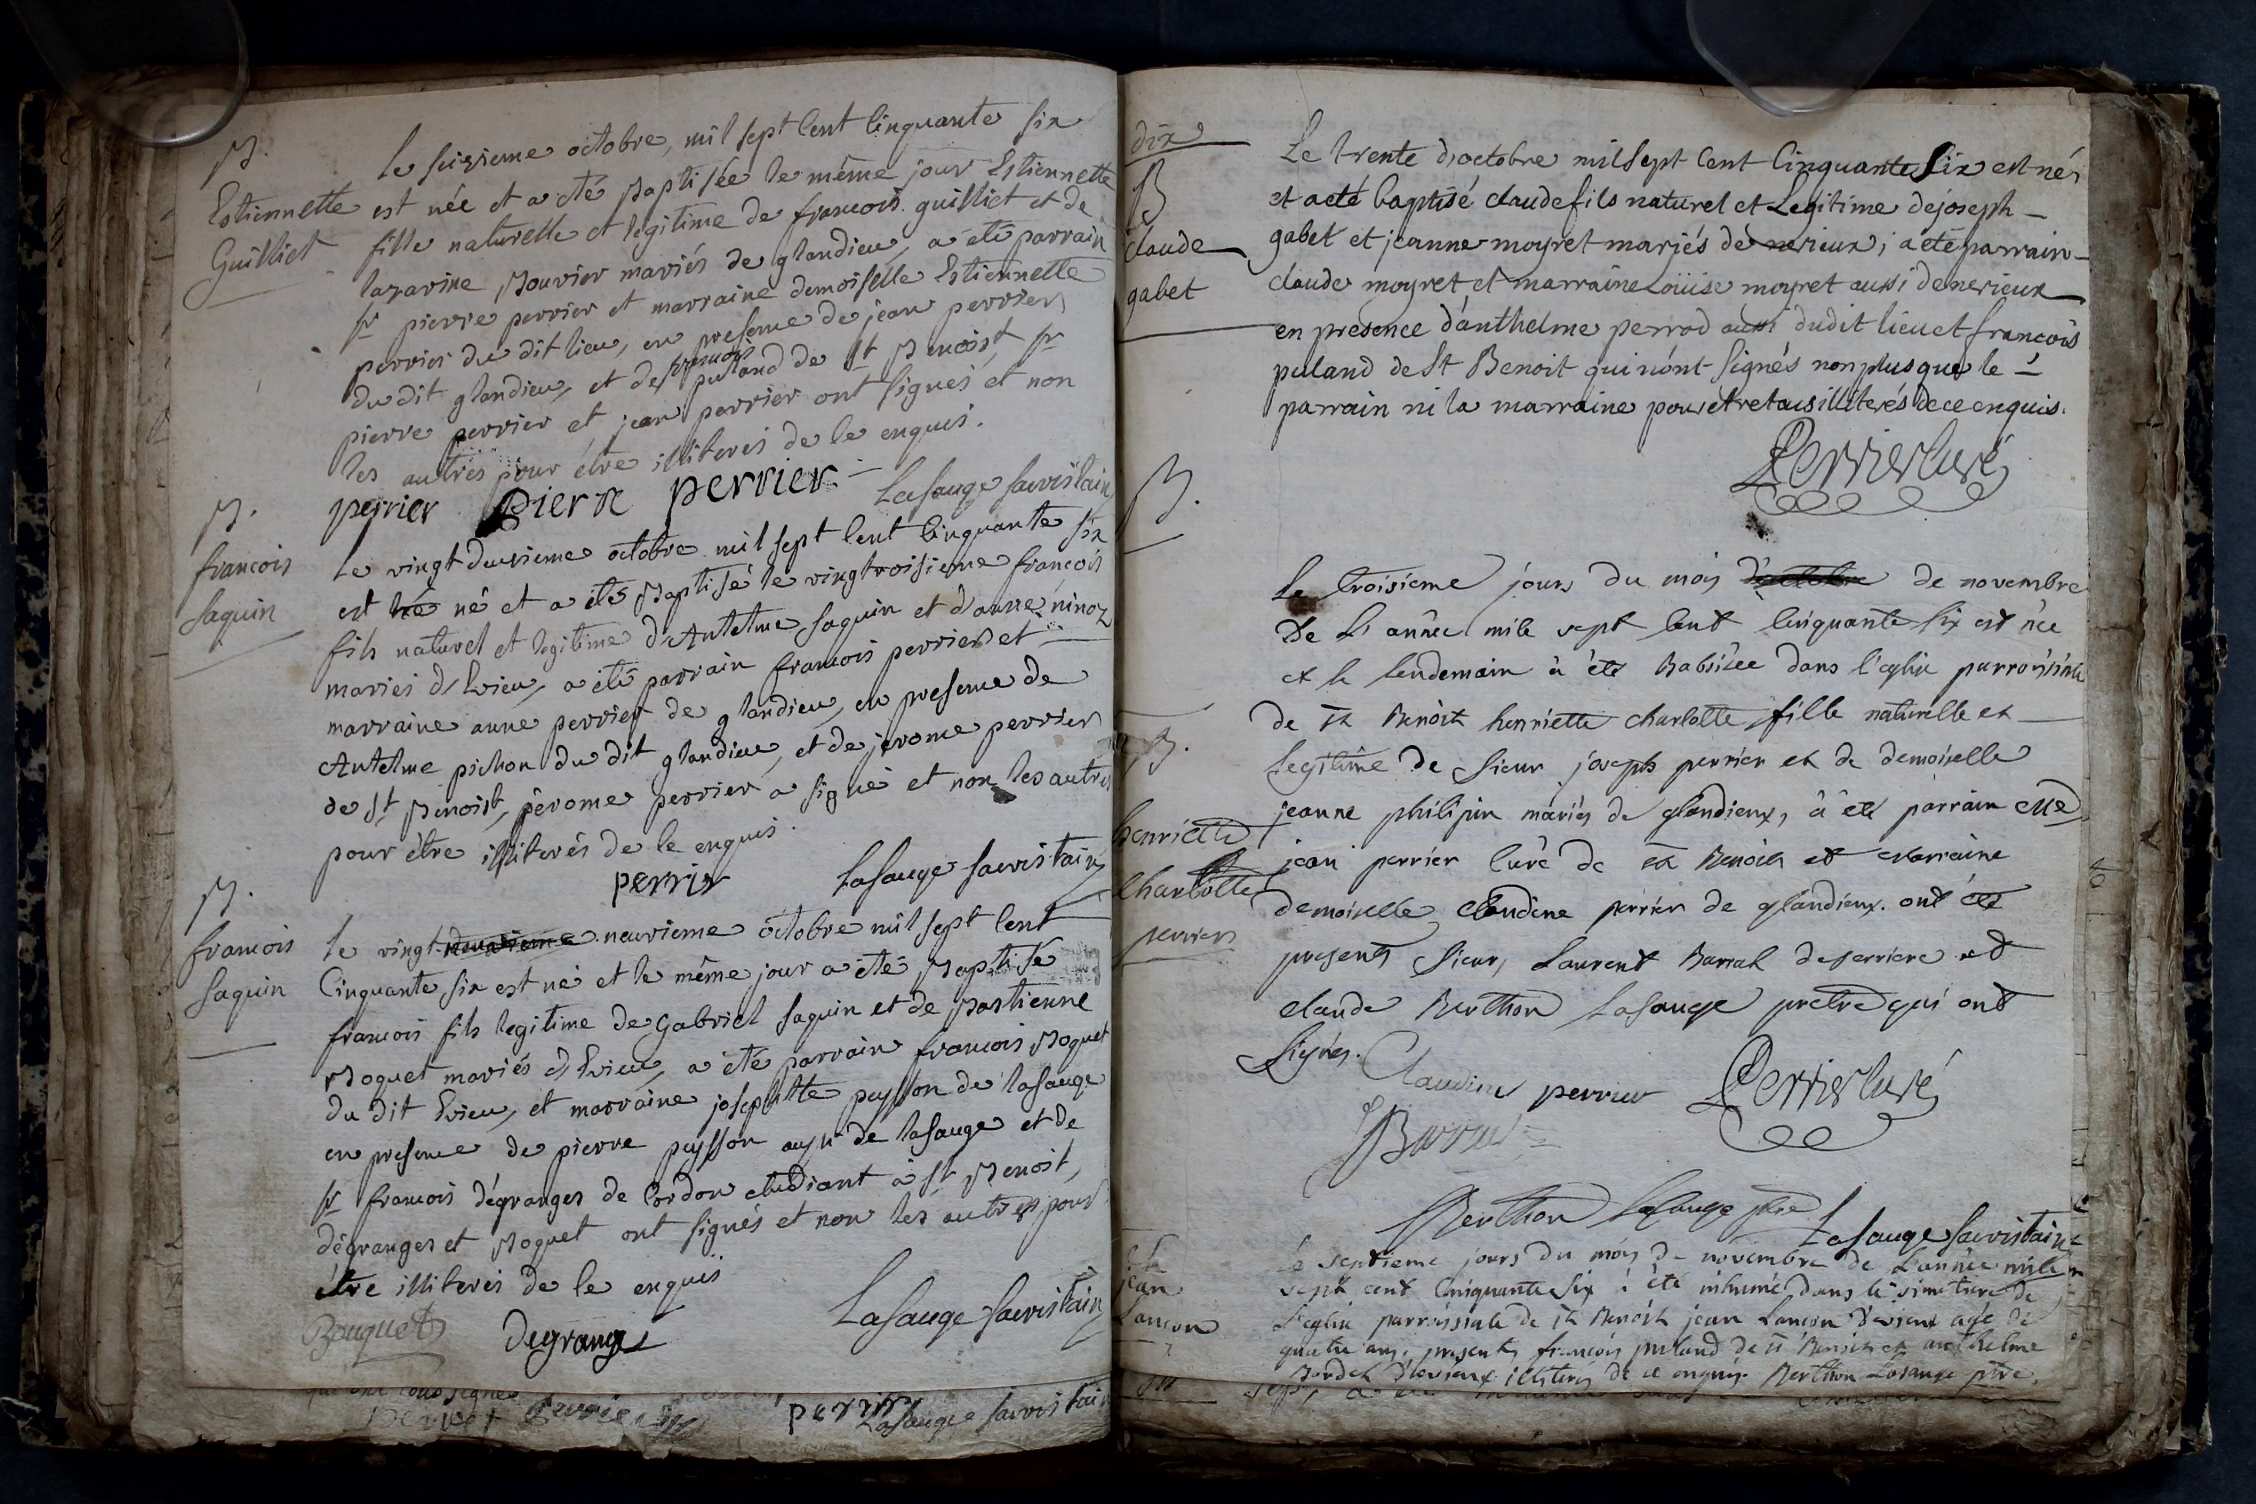 B.
Estiennette
Guilliet
Le seizieme octobre, mil sept Cent Cinquante six
est née et a eté Baptisée le même jour Estiennette
fille naturelle et legitime de francois guilliet et de
lazarine Bouvier mariés de glandieu, a été parrain
sr pierre perrier et marraine demoiselle Estiennette
perrier du dit lieu, en presence de jean perrier
du dit glandieu, et de francois puland de St Benoist, sr
pierre perrier et jean perrier ont signés et non
les autres pour être illiterés de ce enquis.
perrier pierre perrier Lasauge sacristain
B.
francois
saquin
Le vingt deuxieme octobre mil sept Cent Cinquante six
est né né et a été Baptisé le vingtroisieme francois
fils naturel et legitime d'Antelme saquin et d'anne ninoz
mariés d'Evieu, a été parrain francois perrier et
marraine anne perrier de glandieu, en presence de
Antelme pichon du dit glandieu, et de jerome perrier
de St Benoist, jérome perrier a signé et non les autres
pour être illiterés de ce enquis.
perrier Lasauge sacristain
B.
francois
saquin
Le vingt deuxieme neuvieme octobre mil sept Cent
Cinquante six est né et le même jour a été Baptisé
francois fils legitime de Gabriel saquin et de Bastienne
Boquet mariés d'Evieu, a été parrain francois Boquet
du dit Evieu, et marraine josephtte peysson de lasauge
en presence de pierre peysson aussi de lasauge et de
sr francois dégranges de Cordon etudiant à St Benoit,
dégranges et Boquet ont signés et non les autres pour
être illiterés de ce enquis
Bouquet degrange Lasauge sacristain
perrier Lasauge sacristain
dix
B
claude
gabet
Le trente d'octobre mil sept Cent Cinquante Six est né
et a eté baptisé claude fils naturel et Legitime de joseph
gabet et jeanne moyret mariés de nerieux; a eté parrain
claude moyret et marraine Loüise moyret aussi de nerieux
en présence d'anthelme perrod aussi dudit lieu et francois
puland de St Benoit qui n'ont signés non plus que le
parrain ni la marraine pour etre tous illiterés de ce enquis.
Perrier Curé
B.
B.
henriette
Charlotte
perrier
Le troisieme jours du mois d'octobre de novembre
De L'année mile sept cent cinquante six est née
et le lendemain à été Babtisée dans l'eglise parroissiale
de St Benoit henriette charlotte fille naturelle et
legitime de sieur joseph perrier et de demoiselle
jeanne philipin mariés de glandieux, à été parrain Mre
jean perrier Curé de St Benoit et Marraine
demoiselle Claudine perrier de glandieux. ont été
presents Sieur, Laurent Barral deserriere et
claude Berthon Lasauge pretre qui ont
signés.
Claudine perrier Perrier Curé
Barral
Berthon Lasauge ptre
Lasauge sacristain
jean
Lancon
Le septieme jours du mois de novembre de L'année mile
sept cent cinquante six à été inhumé dans le simetiere de
L'eglise parroissiale de St Benoit jean Lancon d'evieux agé de
quatre ans; presents francois puland de St Benoit et anthelme
Bordel d'evieux illiterés de ce enquis. Berthon Lasauge ptre